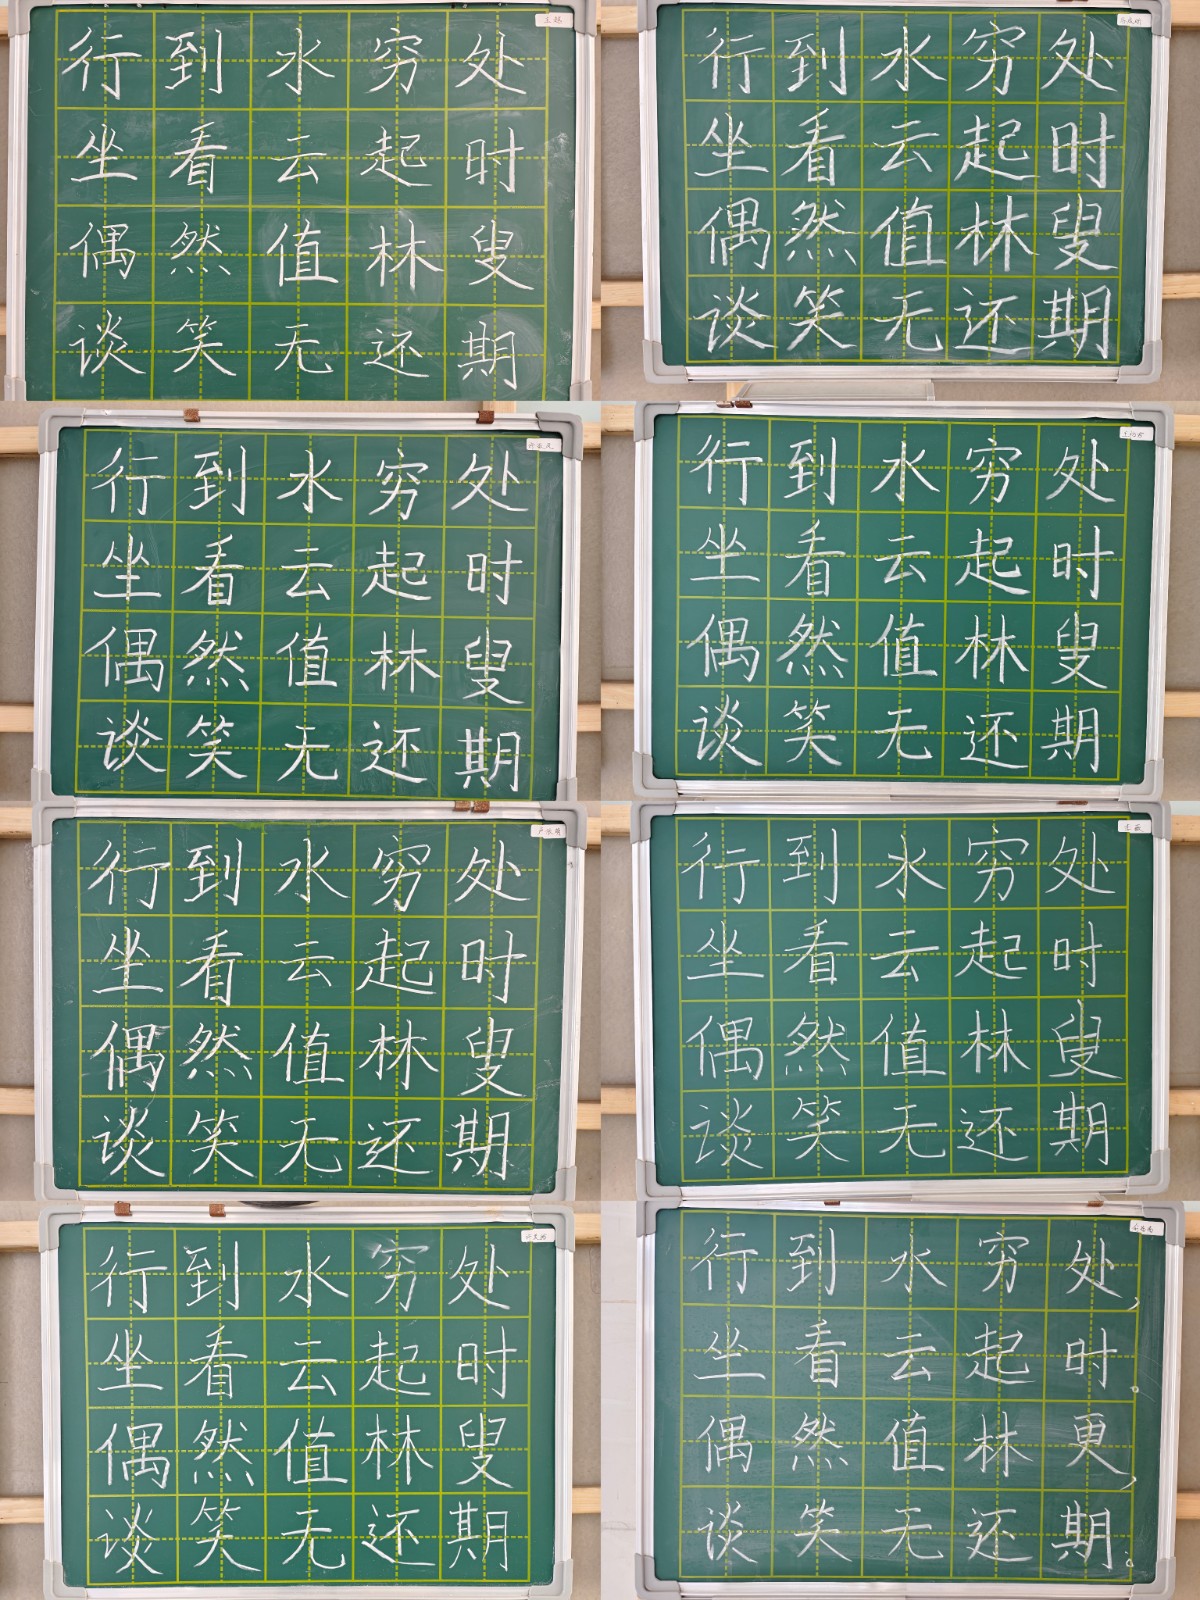 行到水穷处
坐看云起时
偶然值林叟
谈笑无还期
行到水穷处
坐看云起时
偶然值林叟
谈笑无还期
行到水穷处
坐看云起时
偶然值林叟
谈笑无还期
行到水穷处
坐看云起时
偶然值林叟
谈笑无还期
行到水穷处
坐看云起时
偶然值林叟
谈笑无还期
行到水穷处
坐看云起时
偶然值林叟
谈笑无还期
行到水穷处
坐看云起时
偶然值林叟
谈笑无还期
行到水穷处，
坐看云起时。
偶然值林更，
谈笑无还期。